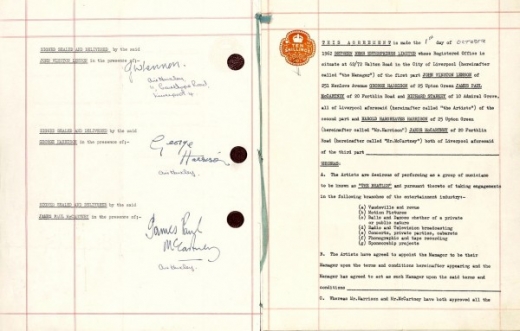 SIGNED SEALED AND DELIVERED by the said
JOHN WINSTON LENNON in the presence of:-
J W Lennon.
SIGNED SEALED AND DELIVERED by the said
GEORGE HARRISON in the presence of:-
George
Harrison
SIGNED SEALED AND DELIVERED by the said
JAMES PAUL McCARTNEY in the presence of:-
James Paul
McCartney
TEN
SHILLINGS
THIS AGREEMENT is made the 1st day of October
1962 BETWEEN NEMS ENTERPRISES LIMITED whose Registered Office is
situate at 69/72 Walton Road in the City of Liverpool (hereinafter
called "the Manager") of the first part JOHN WINSTON LENNON of
251 Menlove Avenue GEORGE HARRISON of 25 Upton Green JAMES PAUL
McCARTNEY of 20 Forthlin Road and RICHARD STARKEY of 10 Admiral Grove,
all of Liverpool aforesaid (hereinafter called "the Artists") of the
second part and HAROLD HARGREAVES HARRISON of 25 Upton Green
(hereinafter called "Mr.Harrison") JAMES McCARTNEY of 20 Forthlin
Road (hereinafter called "Mr.McCartney") both of Liverpool aforesaid
of the third part
WHEREAS:
A. The Artists are desirous of performing as a group of musicians
to be known as "THE BEATLES" and pursuant thereto of taking engagements
in the following branches of the entertainment industry:-
(a) Vaudeville and revue
(b) Motion Pictures
(c) Balls and Dances whether of a private
or public nature
(d) Radio and Television broadcasting
(e) Concerts, private parties, cabarets
(f) Phonographic and tape recording
(g) Sponsorship projects
B. The Artists have agreed to appoint the Manager to be their
Manager upon the terms and conditions hereinafter appearing and the
Manager has agreed to act as such Manager upon the said terms and
conditions
C. Whereas Mr.Harrison and Mr.McCartney have both approved all the